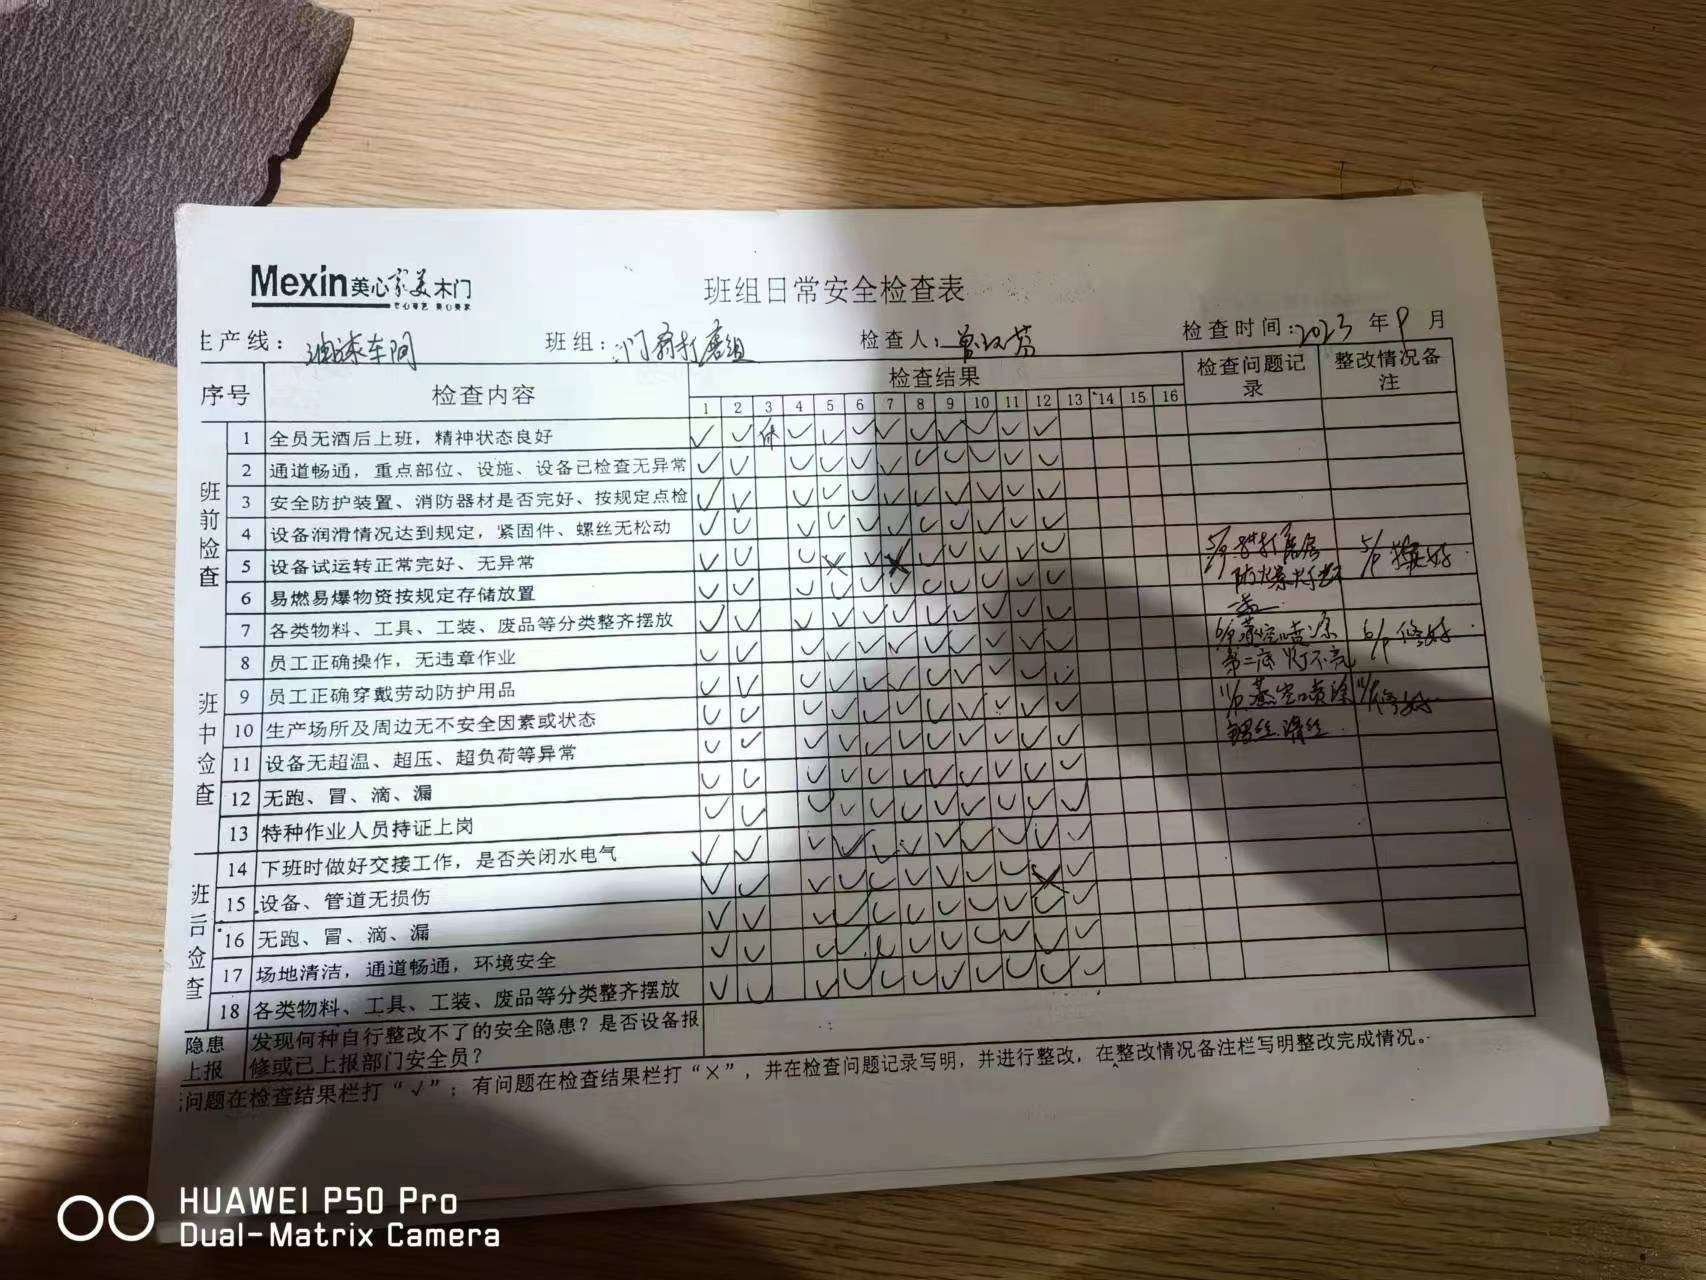 Mexin 美心家美木门
班组日常安全检查表
生产线: 油漆车间 班组: 门扇打磨组 检查人: 检查时间: 2023 年 9 月
序号 检查内容 检查结果 检查问题记录 整改情况备注
1 2 3 4 5 6 7 8 9 10 11 12 13 14 15 16
班前检查
1 全员无酒后上班，精神状态良好 ✓ ✓ 休 ✓ ✓ ✓ ✓ ✓ ✓ ✓ ✓ ✓
2 通道畅通，重点部位、设施、设备已检查无异常
3 安全防护装置、消防器材是否完好、按规定点检
4 设备润滑情况达到规定，紧固件、螺丝无松动
5 设备试运转正常完好、无异常
6 易燃易爆物资按规定存储放置
7 各类物料、工具、工装、废品等分类整齐摆放
班中检查
8 员工正确操作，无违章作业
9 员工正确穿戴劳动防护用品
10 生产场所及周边无不安全因素或状态
11 设备无超温、超压、超负荷等异常
12 无跑、冒、滴、漏
13 特种作业人员持证上岗
班后检查
14 下班时做好交接工作，是否关闭水电气
15 设备、管道无损伤
16 无跑、冒、滴、漏
17 场地清洁，通道畅通，环境安全
18 各类物料、工具、工装、废品等分类整齐摆放
5/9 打磨房
防爆灯
5/9 换好
6/9 喷涂
第二底 灯不亮
6/9 修好
11/9 喷涂
螺丝滑丝
11/9 修好
隐患上报 发现何种自行整改不了的安全隐患？是否设备报
修或已上报部门安全员？
问题在检查结果栏打“✓”；有问题在检查结果栏打“×”，并在检查问题记录写明，并进行整改，在整改情况备注栏写明整改完成情况。
HUAWEI P50 Pro
Dual-Matrix Camera